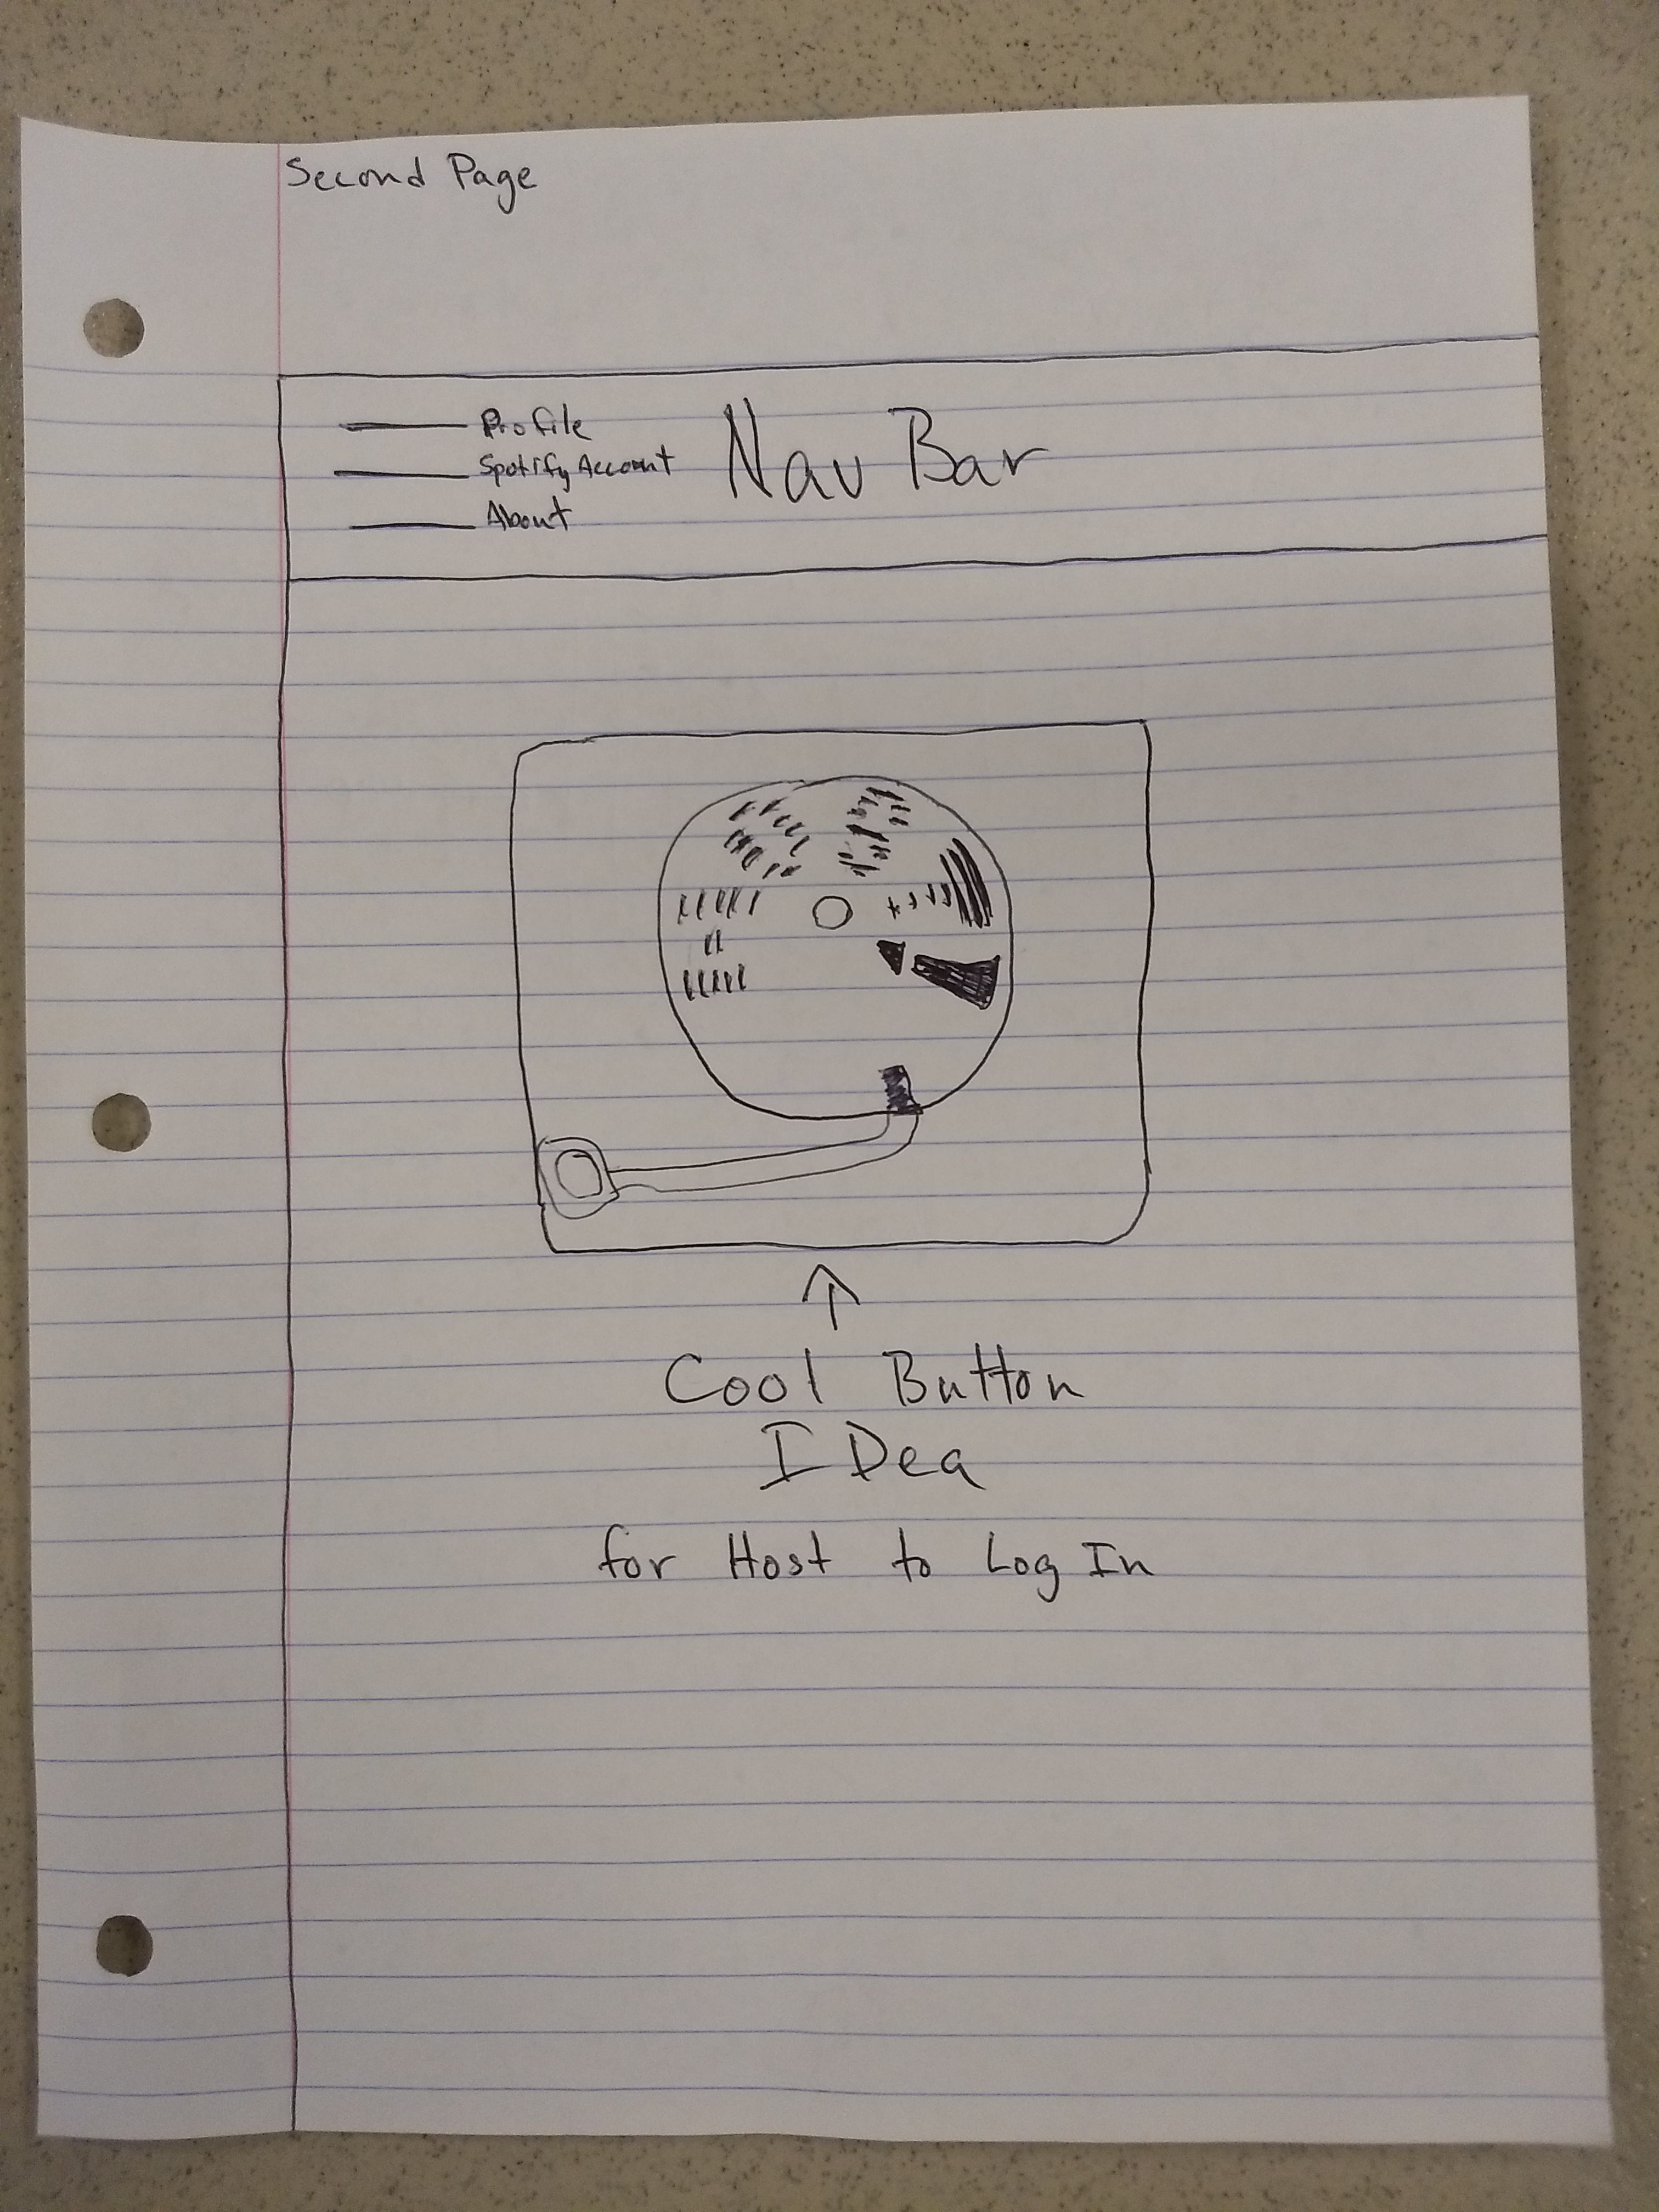 Second Page
Profile
Spotify Account
About
Nav Bar
Cool Button
IDea
for Host to Log In